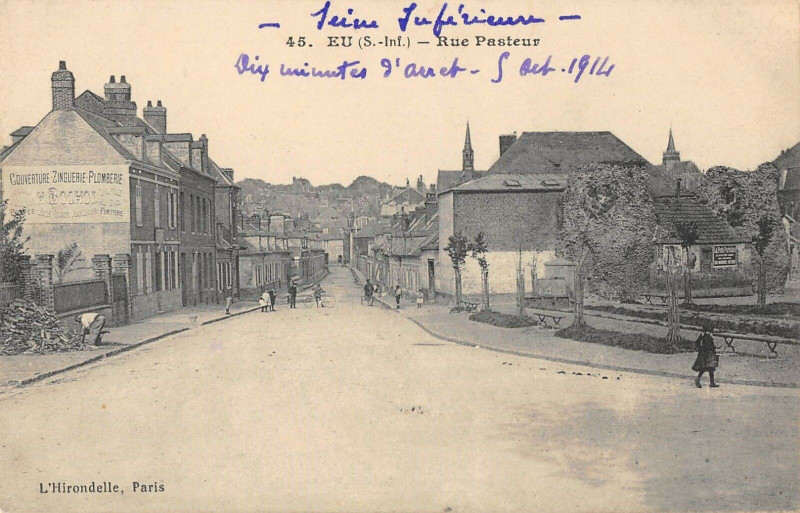 – Seine Inférieure –
45. EU (S.-Inf.) – Rue Pasteur
Dix minutes d'arret - 5 Oct. 1914
COUVERTURE-ZINGUERIE-PLOMBERIE
L'Hirondelle, Paris